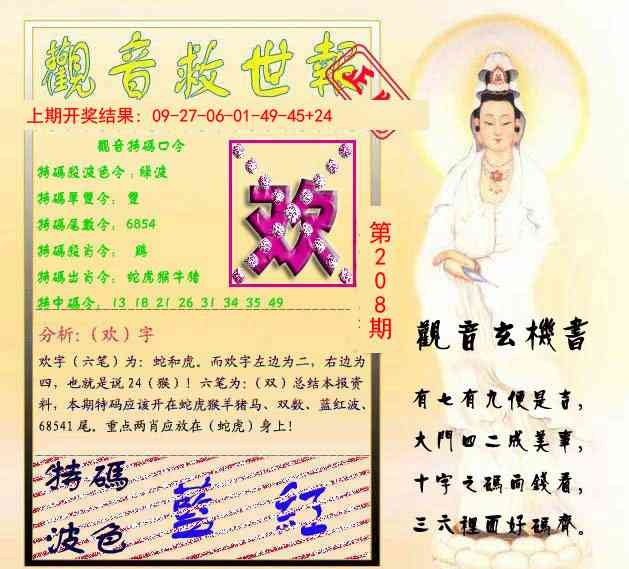 觀音救世報
上期开奖结果：09-27-06-01-49-45+24
觀音特碼口令
特碼段波色令：綠波
特碼單雙令： 雙
特碼尾數令：6854
特碼段肖令： 鷄
特碼出肖令： 蛇虎猴牛猪
特中碼令：13 18 21 26 31 34 35 49
欢
第208期
分析：（欢）字
欢字（六笔）为：蛇和虎。而欢字左边为二，右边为
四，也就是说24（猴）！六笔为：（双）总结本报资
料，本期特码应该开在蛇虎猴羊猪马、双数、蓝红波、
68541尾。重点两肖应放在（蛇虎）身上！
特碼
波色
藍 紅
觀音玄機書
有七有九便是吉，
大門四二成美事，
十字之碼而錢看，
三六裡面好碼齊。